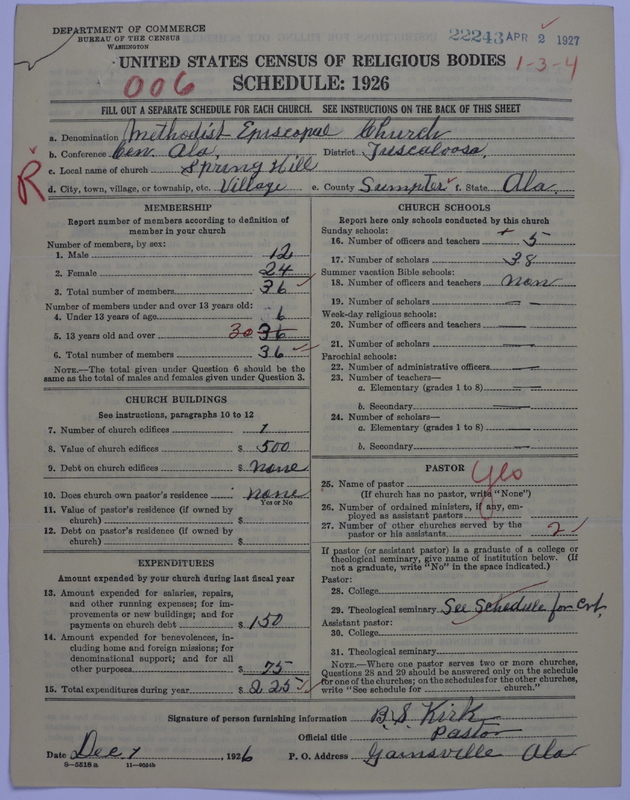 DEPARTMENT OF COMMERCE
BUREAU OF THE CENSUS
WASHINGTON
22243 APR 2 1927
UNITED STATES CENSUS OF RELIGIOUS BODIES
1-3-4
006
SCHEDULE: 1926
FILL OUT A SEPARATE SCHEDULE FOR EACH CHURCH. SEE INSTRUCTIONS ON THE BACK OF THIS SHEET
a. Denomination Methodist Episcopal Church
b. Conference Cen. Ala, District Tuscaloosa,
c. Local name of church Spring Hill
R
d. City, town, village, or township, etc. Village e. County Sumpter f. State Ala.
MEMBERSHIP
Report number of members according to definition of member in your church
Number of members, by sex:
1. Male 12
2. Female 24
3. Total number of members 36
Number of members under and over 13 years old:
4. Under 13 years of age 6
5. 13 years old and over 30 36
6. Total number of members 36
NOTE.—The total given under Question 6 should be same as the total of males and females given under Question 3.
CHURCH BUILDINGS
See instructions, paragraphs 10 to 12
7. Number of church edifices 1
8. Value of church edifices $ 500
9. Debt on church edifices $ none
10. Does church own pastor's residence none
Yes or No
11. Value of pastor's residence (if owned by church) $
12. Debt on pastor's residence (if owned by church) $
EXPENDITURES
Amount expended by your church during last fiscal year
13. Amount expended for salaries, repairs, and other running expenses; for improvements or new buildings; and for payments on church debt $ 150
14. Amount expended for benevolences, including home and foreign missions; for denominational support; and for all other purposes $ 75
15. Total expenditures during year $ 225
CHURCH SCHOOLS
Report here only schools conducted by this church
Sunday schools:
16. Number of officers and teachers 5
17. Number of scholars 38
Summer vacation Bible schools:
18. Number of officers and teachers non
19. Number of scholars —
Week-day religious schools:
20. Number of officers and teachers —
21. Number of scholars —
Parochial schools:
22. Number of administrative officers —
23. Number of teachers—
a. Elementary (grades 1 to 8) —
b. Secondary —
24. Number of scholars—
a. Elementary (grades 1 to 8) —
b. Secondary —
PASTOR
25. Name of pastor yes
(If church has no pastor, write "None")
26. Number of ordained ministers, if any, employed as assistant pastors
27. Number of other churches served by the pastor or his assistants 2
If pastor (or assistant pastor) is a graduate of a college or theological seminary, give name of institution below. (If not a graduate, write "No" in the space indicated.)
Pastor:
28. College
29. Theological seminary See Schedule for
Assistant pastor:
30. College
31. Theological seminary
NOTE.—Where one pastor serves two or more churches, Questions 28 and 29 should be answered only on the schedule for one of the churches; on the schedules for the other churches, write "See schedule for church."
Signature of person furnishing information B. S. Kirk
Official title Pastor
Date Dec. 7, 1926 P. O. Address Gainsville Ala
8-5518 a 11-9034b